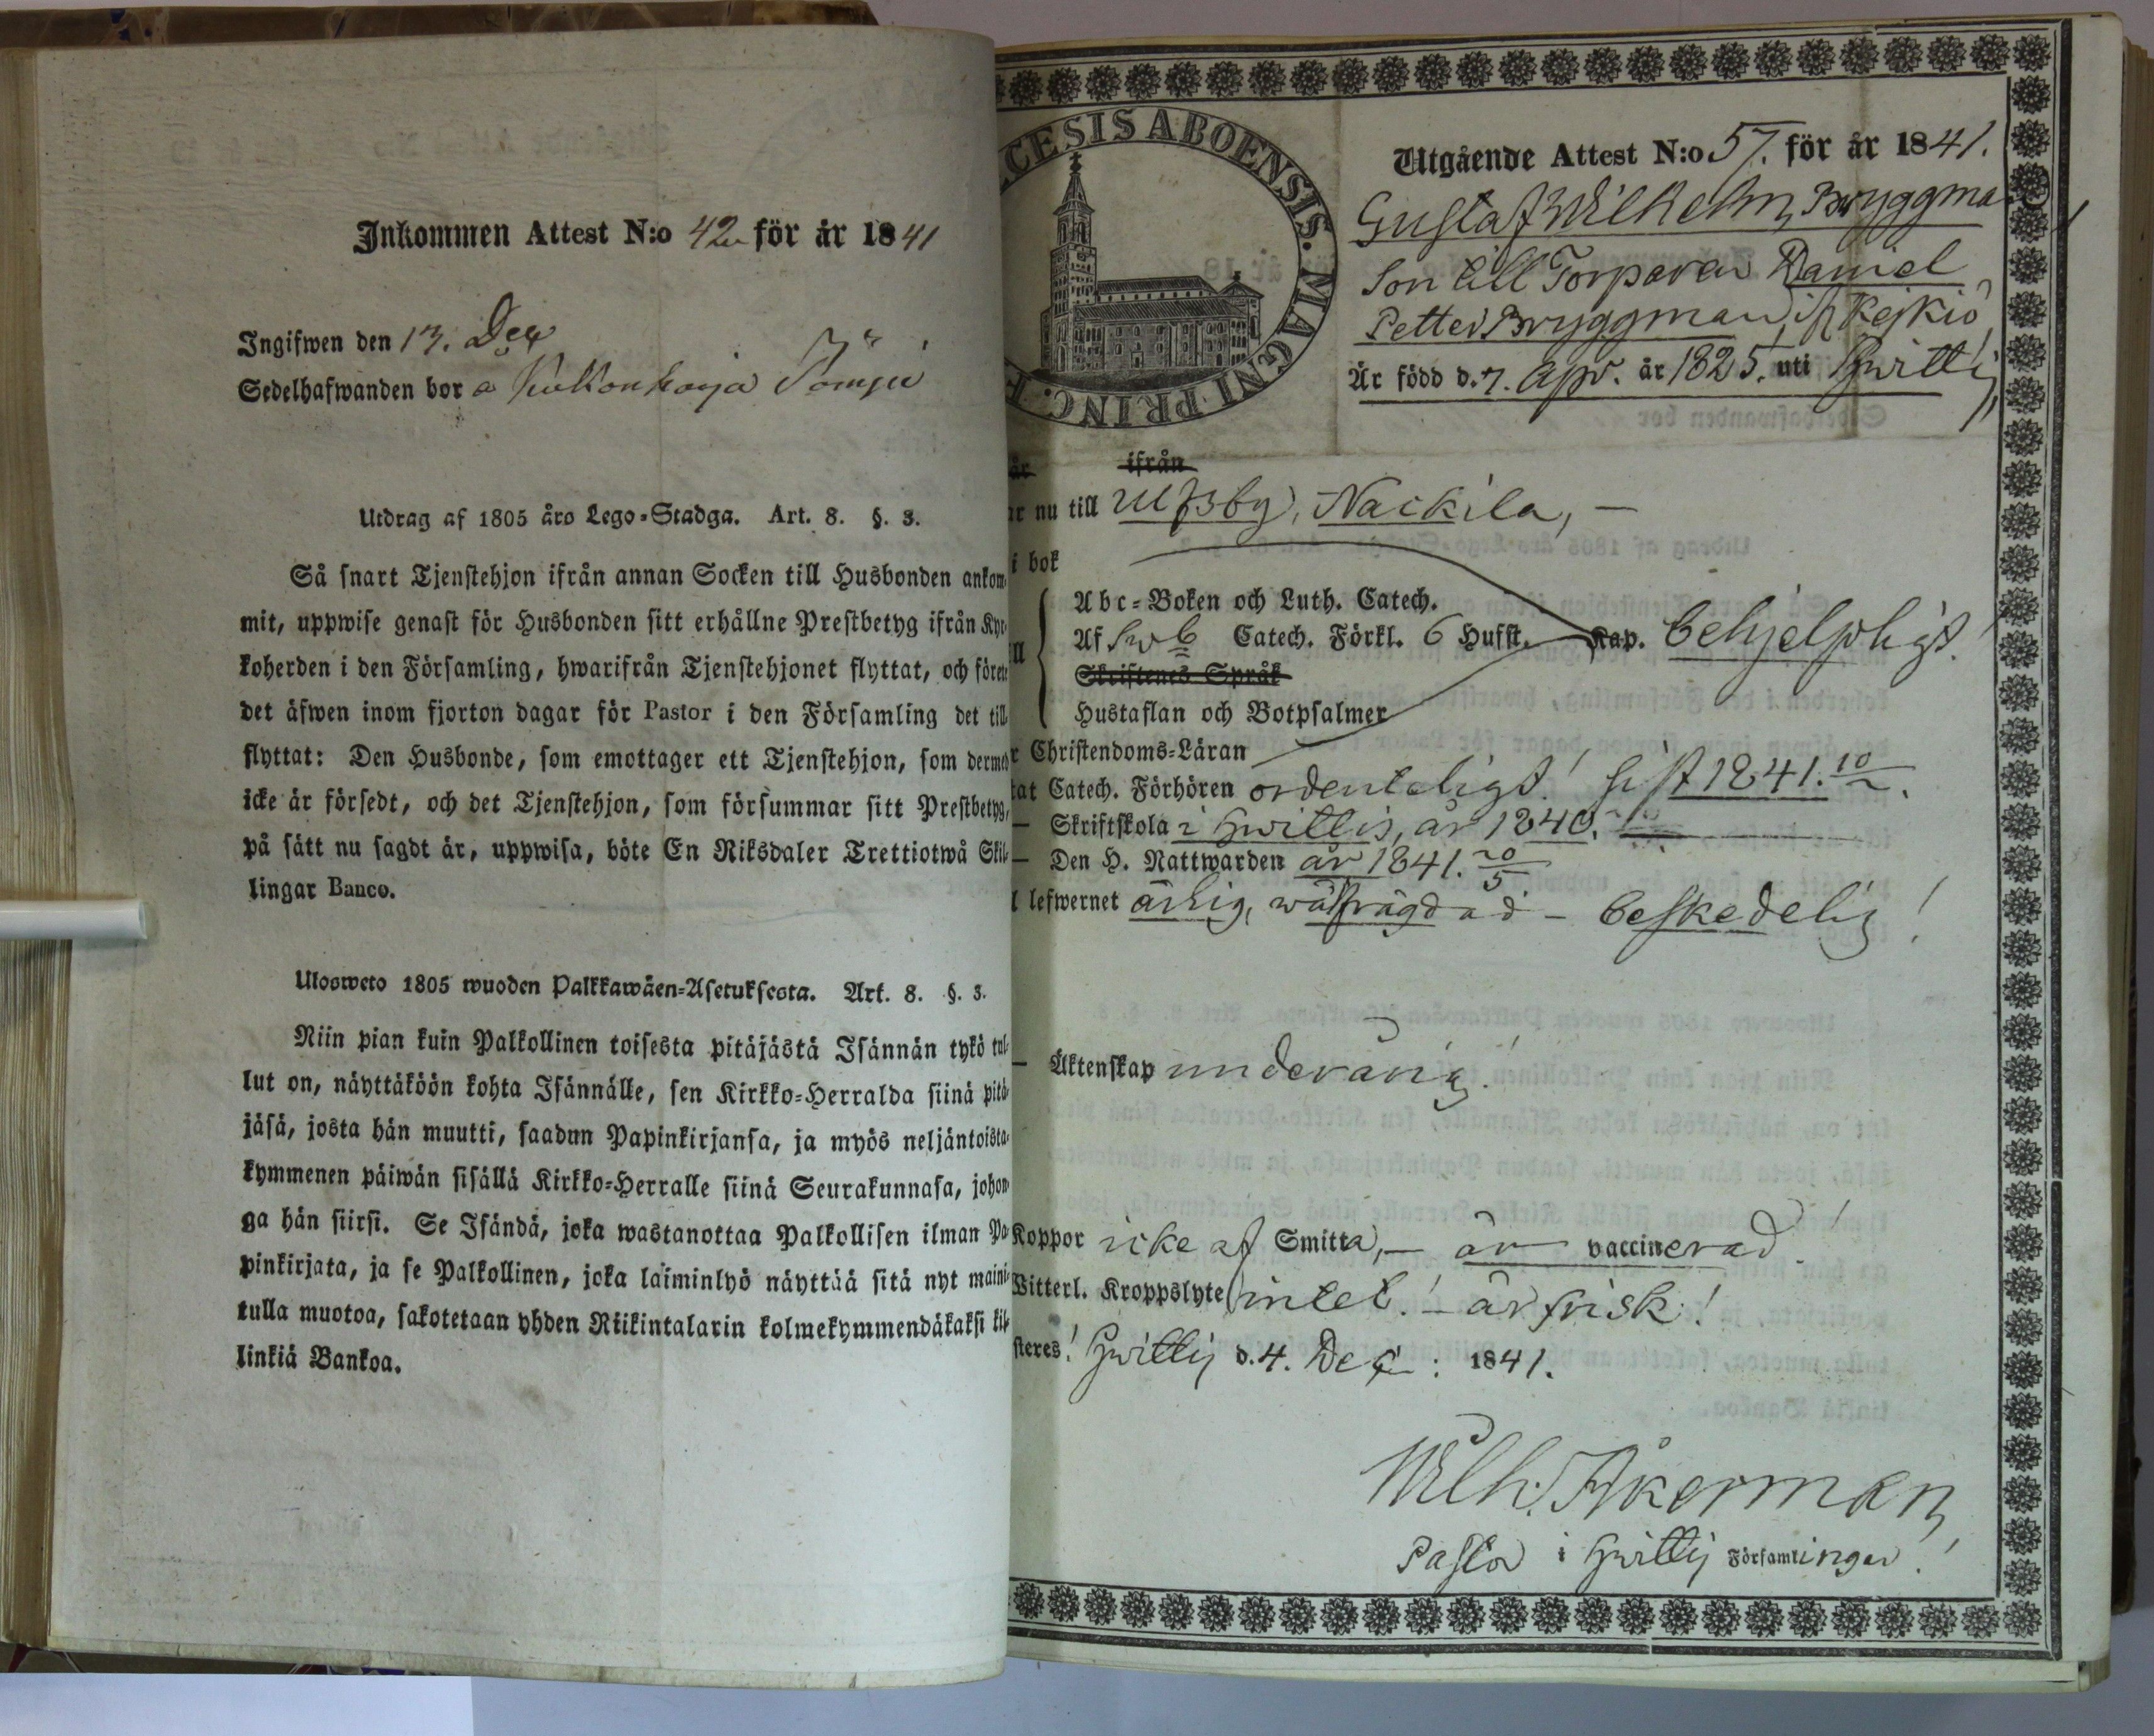 Inkommen Attest N:o 42 för år 1841
Ingifwen den 13. Dec
Sedelhafwanden bor
Utdrag af 1805 års Lego-Stadga. Art. 8. §. 3.
Så snart Tjenstehjon ifrån annan Socken till Husbonden ankom-
mit, uppwise genast för Husbonden sitt erhållne Prestbetyg ifrån Kyr-
koherden i den Församling, hwarifrån Tjenstehjonet flyttat, och förete
det äfwen inom fjorton dagar för Pastor i den Församling det till-
flyttat: Den Husbonde, som emottager ett Tjenstehjon, som dermed
icke är försedt, och det Tjenstehjon, som försummar sitt Prestbetyg,
på sätt nu sagdt är, uppwisa, böte En Riksdaler Trettiotwå Skil-
lingar Banco.
Ulosweto 1805 wuoden Palkkawäen-Asetuksesta. Art. 8. §. 3.
Niin pian kuin Palkollinen toisesta pitäjästä Isännän tykö tul-
lut on, näyttäköön kohta Isännälle, sen Kirkko-Herralda siinä pitä-
jäsä, josta hän muutti, saadun Papinkirjansa, ja myös neljäntoista-
kymmenen päiwän sisällä Kirkko-Herralle siinä Seurakunnasa, johon-
ga hän siirsi. Se Isändä, joka wastanottaa Palkollisen ilman Pa-
pinkirjata, ja se Palkollinen, joka laiminlyö näyttää sitä nyt maini-
tulla muotoa, sakotetaan yhden Riikintalarin kolmekymmendäkaksi kil-
linkiä Bankoa.
CESIS ABOENSIS. MAGNI PRINC. F
Utgående Attest N:o 57. för år 1841.
Gustaf Wilhelm Bryggman
Son till Torparen Daniel
Petter Bryggman, if Keikio
Är född d. 7. Apr. år 1825. uti Hvittis,
år ifrån
ar nu till Ulfsby, Nackila, –
i bok
Abc-Boken och Luth. Catech.
Af Sveb Catech. Förkl. 6 Hufst. Kap. behjelpligt!
Skriftenes Språk
Hustaflan och Botpsalmer
r Christendoms-Läran
tat Catech. Förhören ordenteligt! sist 1841.
– Skriftskola i Hvittis, år 1840.
– Den H. Nattwarden år 1841. 20/5
l lefwernet ärlig, wälfrägdad – beskedelig!
– Äktenskap underårig!
Koppor icke af Smitta, – är vaccinerad!
Witterl. Kroppslyte intet! – är frisk!
steres! Hvittis d. 4. Dec: 1841.
Wilh. Åkerman
Pastor i Hvittis Församlingar!